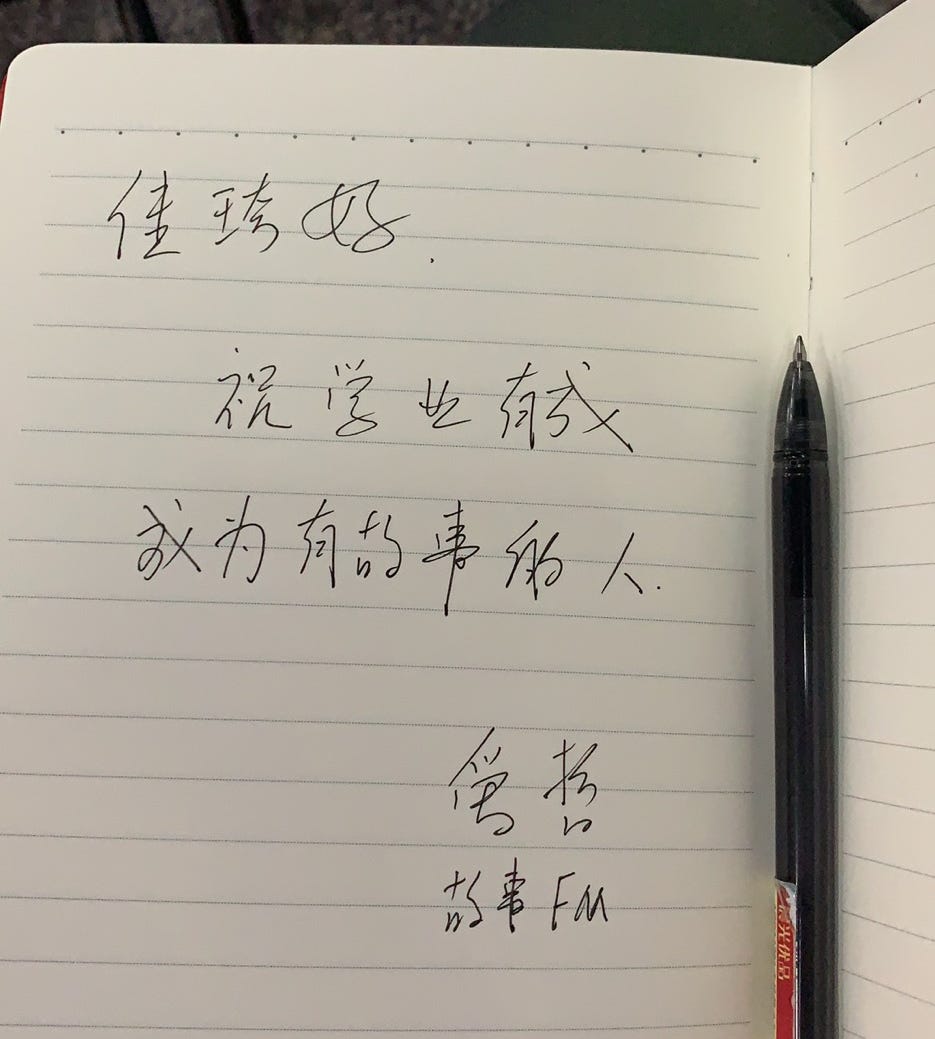 佳琦好.
祝学业有成
成为有故事的人.
爱哲
故事FM
晨光优品